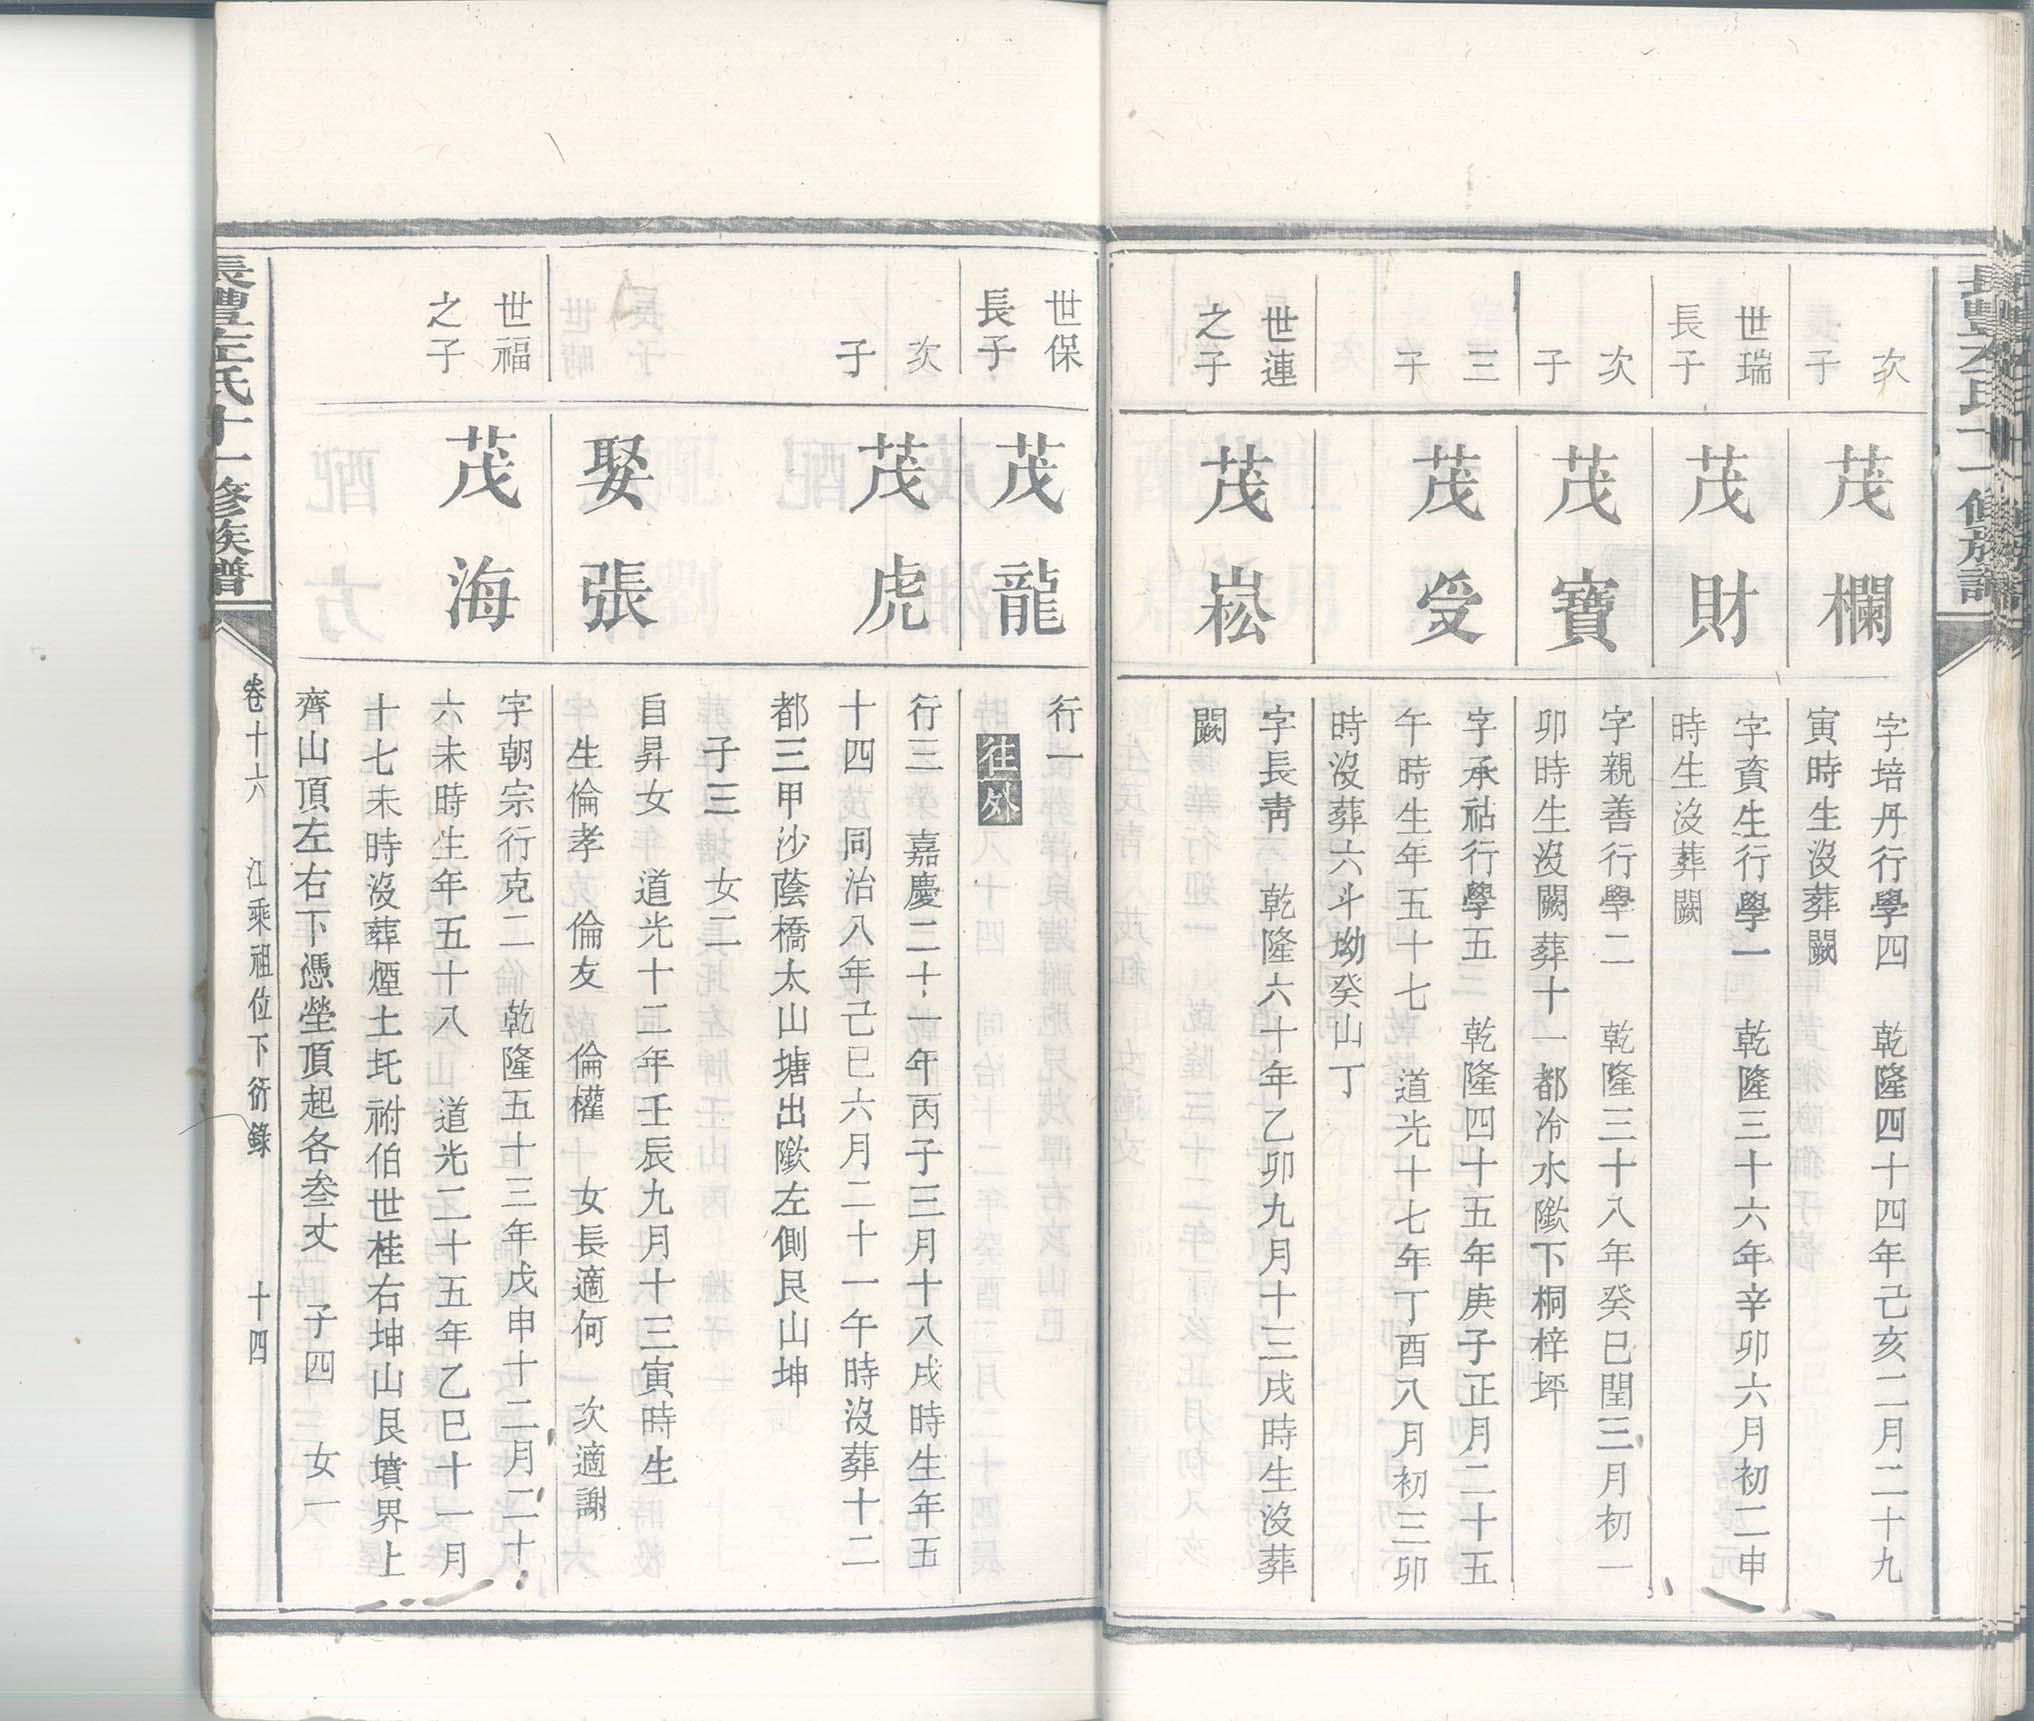 次子
茂欄
字培丹行學四　乾隆四十四年己亥二月二十九
寅時生沒葬闕
世瑞長子
茂財
字資生行學一　乾隆三十六年辛卯六月初二申
時生沒葬闕
次子
茂寶
字親善行學二　乾隆三十八年癸巳閏三月初一
卯時生沒闕葬十一都冷水隞下桐梓坪
三子
茂受
字承祜行學五　乾隆四十五年庚子正月二十五
午時生年五十七　道光十七年丁酉八月初三卯
時沒葬六斗坳癸山丁
世連之子
茂崧
字長靑　乾隆六十年乙卯九月十三戌時生沒葬
闕
世保長子
茂龍
行一
往外
次子
茂虎
行三　嘉慶二十一年丙子三月十八戌時生年五
十四　同治八年己巳六月二十一午時沒葬十二
都三甲沙蔭橋太山塘出隞左側艮山坤
子三　女二
娶張
自昇女　道光十二年壬辰九月十三寅時生
生倫孝　倫友　倫權　女長適何　次適謝
世福之子
茂海
字朝宗行克二　乾隆五十三年戊申十二月二十
六未時生年五十八　道光二十五年乙巳十一月
十七未時沒葬煙土圫祔伯世桂右坤山艮墳界上
齊山頂左右下憑塋頂起各叁丈　子四　女一
長豐左氏十一修族譜
卷十六　江乘祖位下衍錄　十四